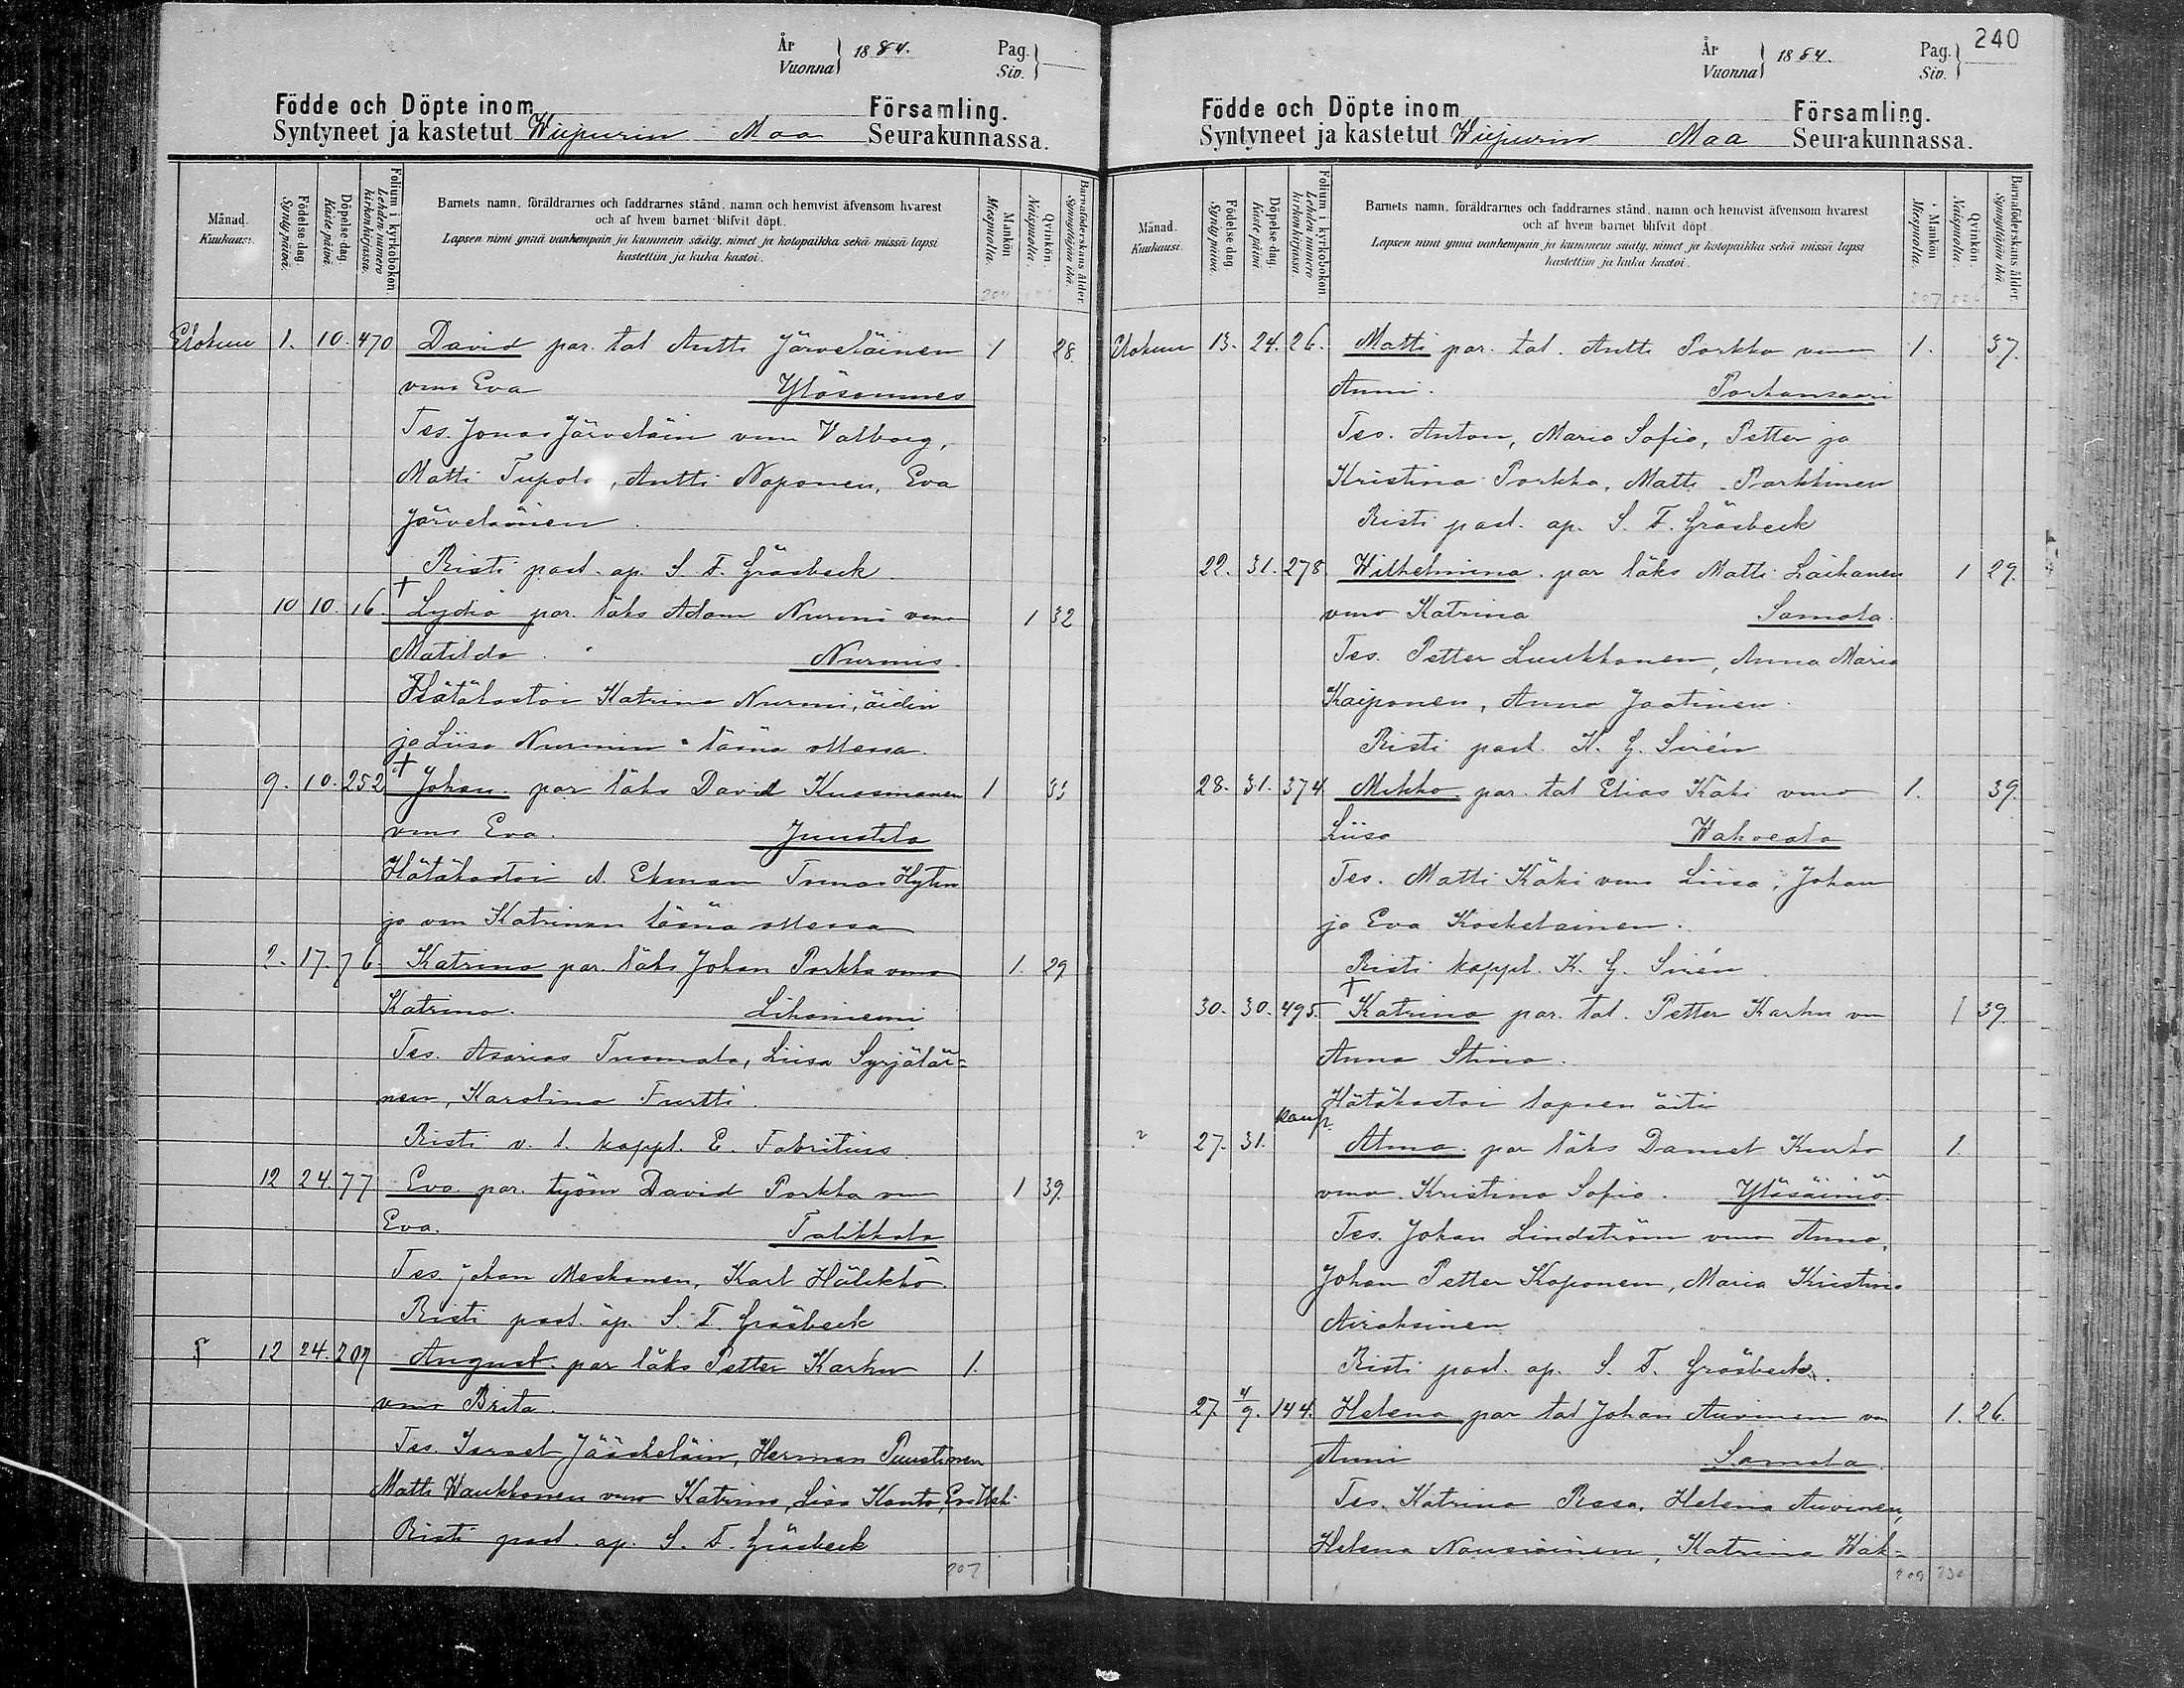 År Vuonna } 1884. Pag. Siv. }
Födde och Döpte inom Församling.
Syntyneet ja kastetut Wiipurin Maa Seurakunnassa.
Månad. Kuukausi.
Födelse dag. Synty päivä.
Döpelse dag. Kaste päivä.
Folium i kyrkoboken. Lehden numero kirkonkirjassa.
Barnets namn, föräldrarnes och faddrarnes stånd, namn och hemvist äfvensom hvarest
och af hvem barnet blifvit döpt.
Lapsen nimi ynnä vanhempain ja kummein sääty, nimet ja kotopaikka sekä missä lapsi
kastettiin ja kuka kastoi.
Mankön Miespuolia.
Qvinkön. Naispuolia.
Barnaföderskans ålder. Synnyttäjän ikä.
Elokuu 1. 10. 470 David par. tal Antti Järveläinen 1 28.
vmo Eva Yläsommes
Tes. Jonas Järveläin vmo Valborg,
Matti Tupola, Antti Noponen, Eva
Järveläinen.
Risti past. ap. S. F. Gråsbeck
10 10. 16. † Lydia par. läks Adam Nurmi vmo 1 32
Matilda. Nurmis
Hätäkastoi Katrina Nurmi, äidin
ja Liisa Nurmin läsnä ollessa.
9. 10. 252 † Johan par läks David Kuosmanen 1 33
vmo Eva. Juustila
Hätäkastoi A. Ekman Tomas Hyten
ja vm Katrinan läsnä ollessa
2. 17. 76. Katrina par. läks Johan Porkka vmo 1. 29
Katrina. Lihaniemi
Tes. Asarias Tuomala, Liisa Syrjäläi=
nen, Karolina Furtti.
Risti v. t. kappl. E. Fabritius
12 24. 77 Eva par. työm David Porkka vm 1 39.
Eva. Talikkala
Tes. Johan Meskanen, Karl Hälikkö.
Risti past. ap. S. F. Gråsbeck
? 12 24. 207 August par läks Petter Karhu 1.
vmo Brita.
Tes. Israel Jääskeläin, Herman Puustinen
Matti Haukkonen vmo Katrina, Lisa Kanto,
Risti past. ap. S. F. Gråsbeck
207
240
År Vuonna } 1884. Pag. Siv. }
Födde och Döpte inom Församling.
Syntyneet ja kastetut Wiipurin Maa Seurakunnassa.
Månad. Kuukausi.
Födelse dag. Synty päivä.
Döpelse dag. Kaste päivä.
Folium i kyrkoboken. Lehden numero kirkonkirjassa.
Barnets namn, föräldrarnes och faddrarnes stånd, namn och hemvist äfvensom hvarest
och af hvem barnet blifvit döpt.
Lapsen nimi ynnä vanhempain ja kummein sääty, nimet ja kotopaikka sekä missä lapsi
kastettiin ja kuka kastoi.
Mankön Miespuolia.
Qvinkön. Naispuolia.
Barnaföderskans ålder. Synnyttäjän ikä.
Elokuu 13. 24. 26. Matti par. tal. Antti Porkka vmo 1. 37.
Anni. Porkansaari
Tes. Anton, Maria Sofia, Petter ja
Kristina Porkka, Matti Parkkinen
Risti past. ap. S. F. Gråsbeck
22. 31. 278 Wilhelmina par läks Matti Laihanen 1 29.
vmo Katrina Samola.
Tes. Petter Luukkonen, Anna Maria
Kaiponen, Anna Jaatinen.
Risti past. K. G. Sirén
28. 31. 374 Mikko par. tal Elias Käki vmo 1. 39.
Liisa Wahviala
Tes. Matti Käki vmo Liisa, Johan
ja Eva Koskelainen.
Risti kappl. K. G. Sirén
30. 30. 495. † Katrina par. tal. Petter Karhu vm 1 39.
Anna Stina.
Hätäkastoi lapsen äiti
? 27. 31. kaup. Alma par läks Daniel Kurko 1.
vmo Kristina Sofia. Yläsäiniö
Tes. Johan Lindström vmo Anna,
Johan Petter Koponen, Maria Kristina
Airaksinen
Risti past. ap. S. F. Gråsbeck.
27. 4/9. 144. Helena par tal Johan Auvinen vm 1. 26.
Anni Samola
Tes. Katrina Rasa, Helena Auvinen,
Helena Nousiainen, Katrina Wah=
209 230